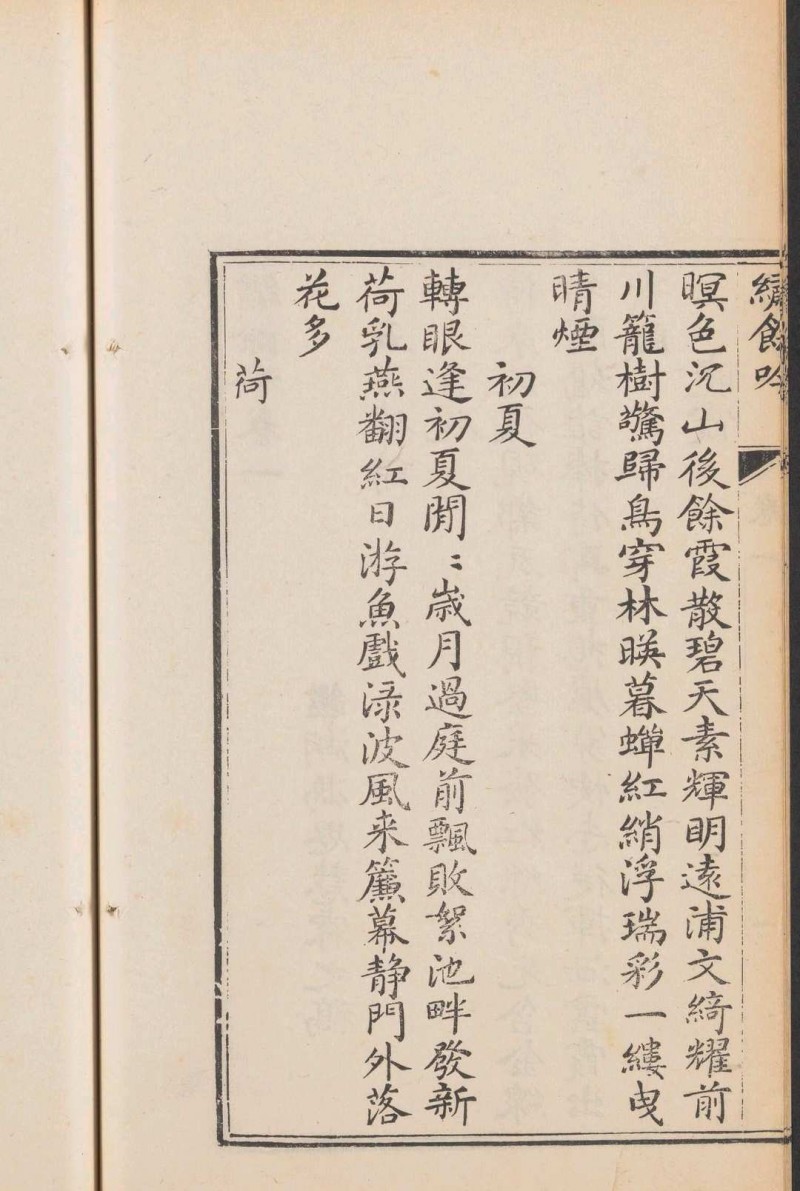 繡餘吟
暝色沉山後餘霞散碧天素輝明遠浦文綺耀前
川籠樹驚歸鳥穿林暎暮蟬紅綃浮瑞彩一縷曳
晴煙
初夏
轉眼逢初夏閒〻歲月過庭前飄敗絮池畔發新
荷乳燕翻紅日游魚戲渌波風来簾幕静門外落
花多
荷